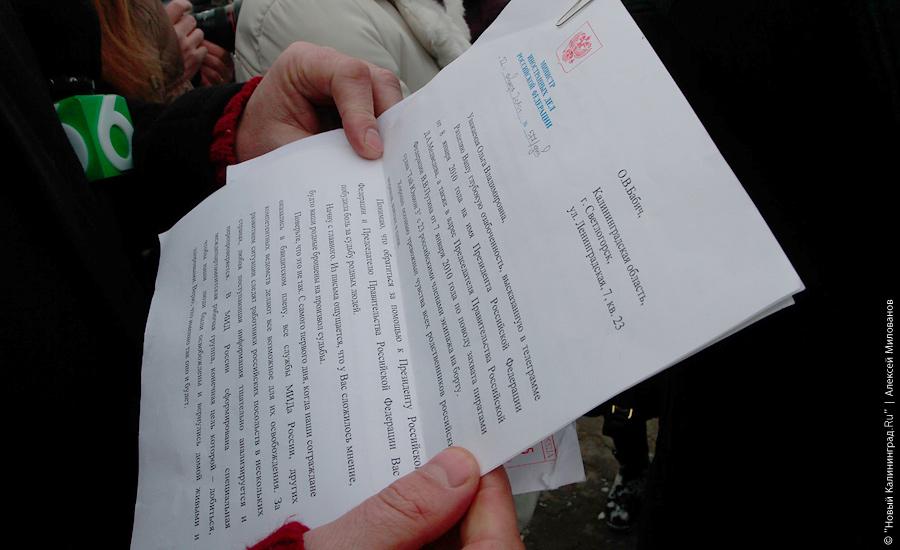 МИНИСТР
ИНОСТРАННЫХ ДЕЛ
РОССИЙСКОЙ ФЕДЕРАЦИИ
О.В.Бабич,
Калининградская область,
г. Светлогорск,
ул. Ленинградская, 7, кв. 23
Уважаемая Ольга Владимировна,
Разделяю Вашу глубокую озабоченность, высказанную в телеграмме
от 8 января 2010 года на имя Президента Российской Федерации
Д.А.Медведева, а также в адрес Председателя Правительства Российской
Федерации В.В.Путина от 7 января 2010 года по поводу захвата пиратами
судна с 23 российскими членами экипажа на борту.
чувства всех родственников российских
Понимаю, что обратиться за помощью к Президенту Российской
Федерации и Председателю Правительства Российской Федерации Вас
побудила боль за судьбу родных людей.
Начну с главного. Из письма ощущается, что у Вас сложилось мнение,
будто ваши родные брошены на произвол судьбы.
Поверьте, что это не так. С самого первого дня, когда наши сограждане
оказались в бандитском плену, все службы МИДа России, других
компетентных ведомств делают все возможное для их освобождения. За
развитием ситуации следят работники российских посольств в нескольких
странах, любая поступающая информация тщательно анализируется и
перепроверяется. В МИД России сформирована специальная
межведомственная рабочая группа, конечная цель которой – добиться,
чтобы наши люди были освобождены и вернулись домой живыми и
здоровыми. Верю, что именно так оно и будет.
© "Новый Калининград.Ru" | Алексей Милованов